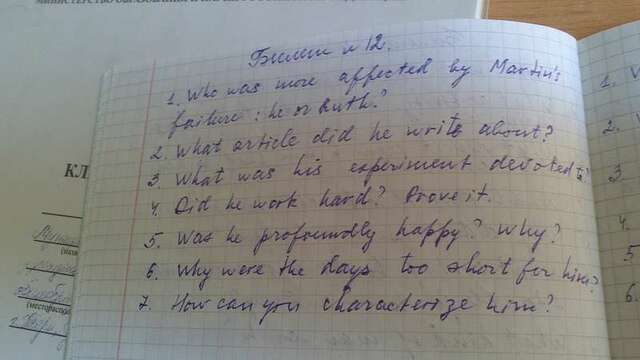 Билет № 12.
1. Who was more affected by Martin's
failure: he or Ruth?
2. What article did he write about?
3. What was his experiment devoted to?
4. Did he work hard? Prove it.
5. Was he profoundly happy? Why?
6. Why were the days too short for him?
7. How can you characterize him?
КЛ
1. V
2.
3
4.
5
6.